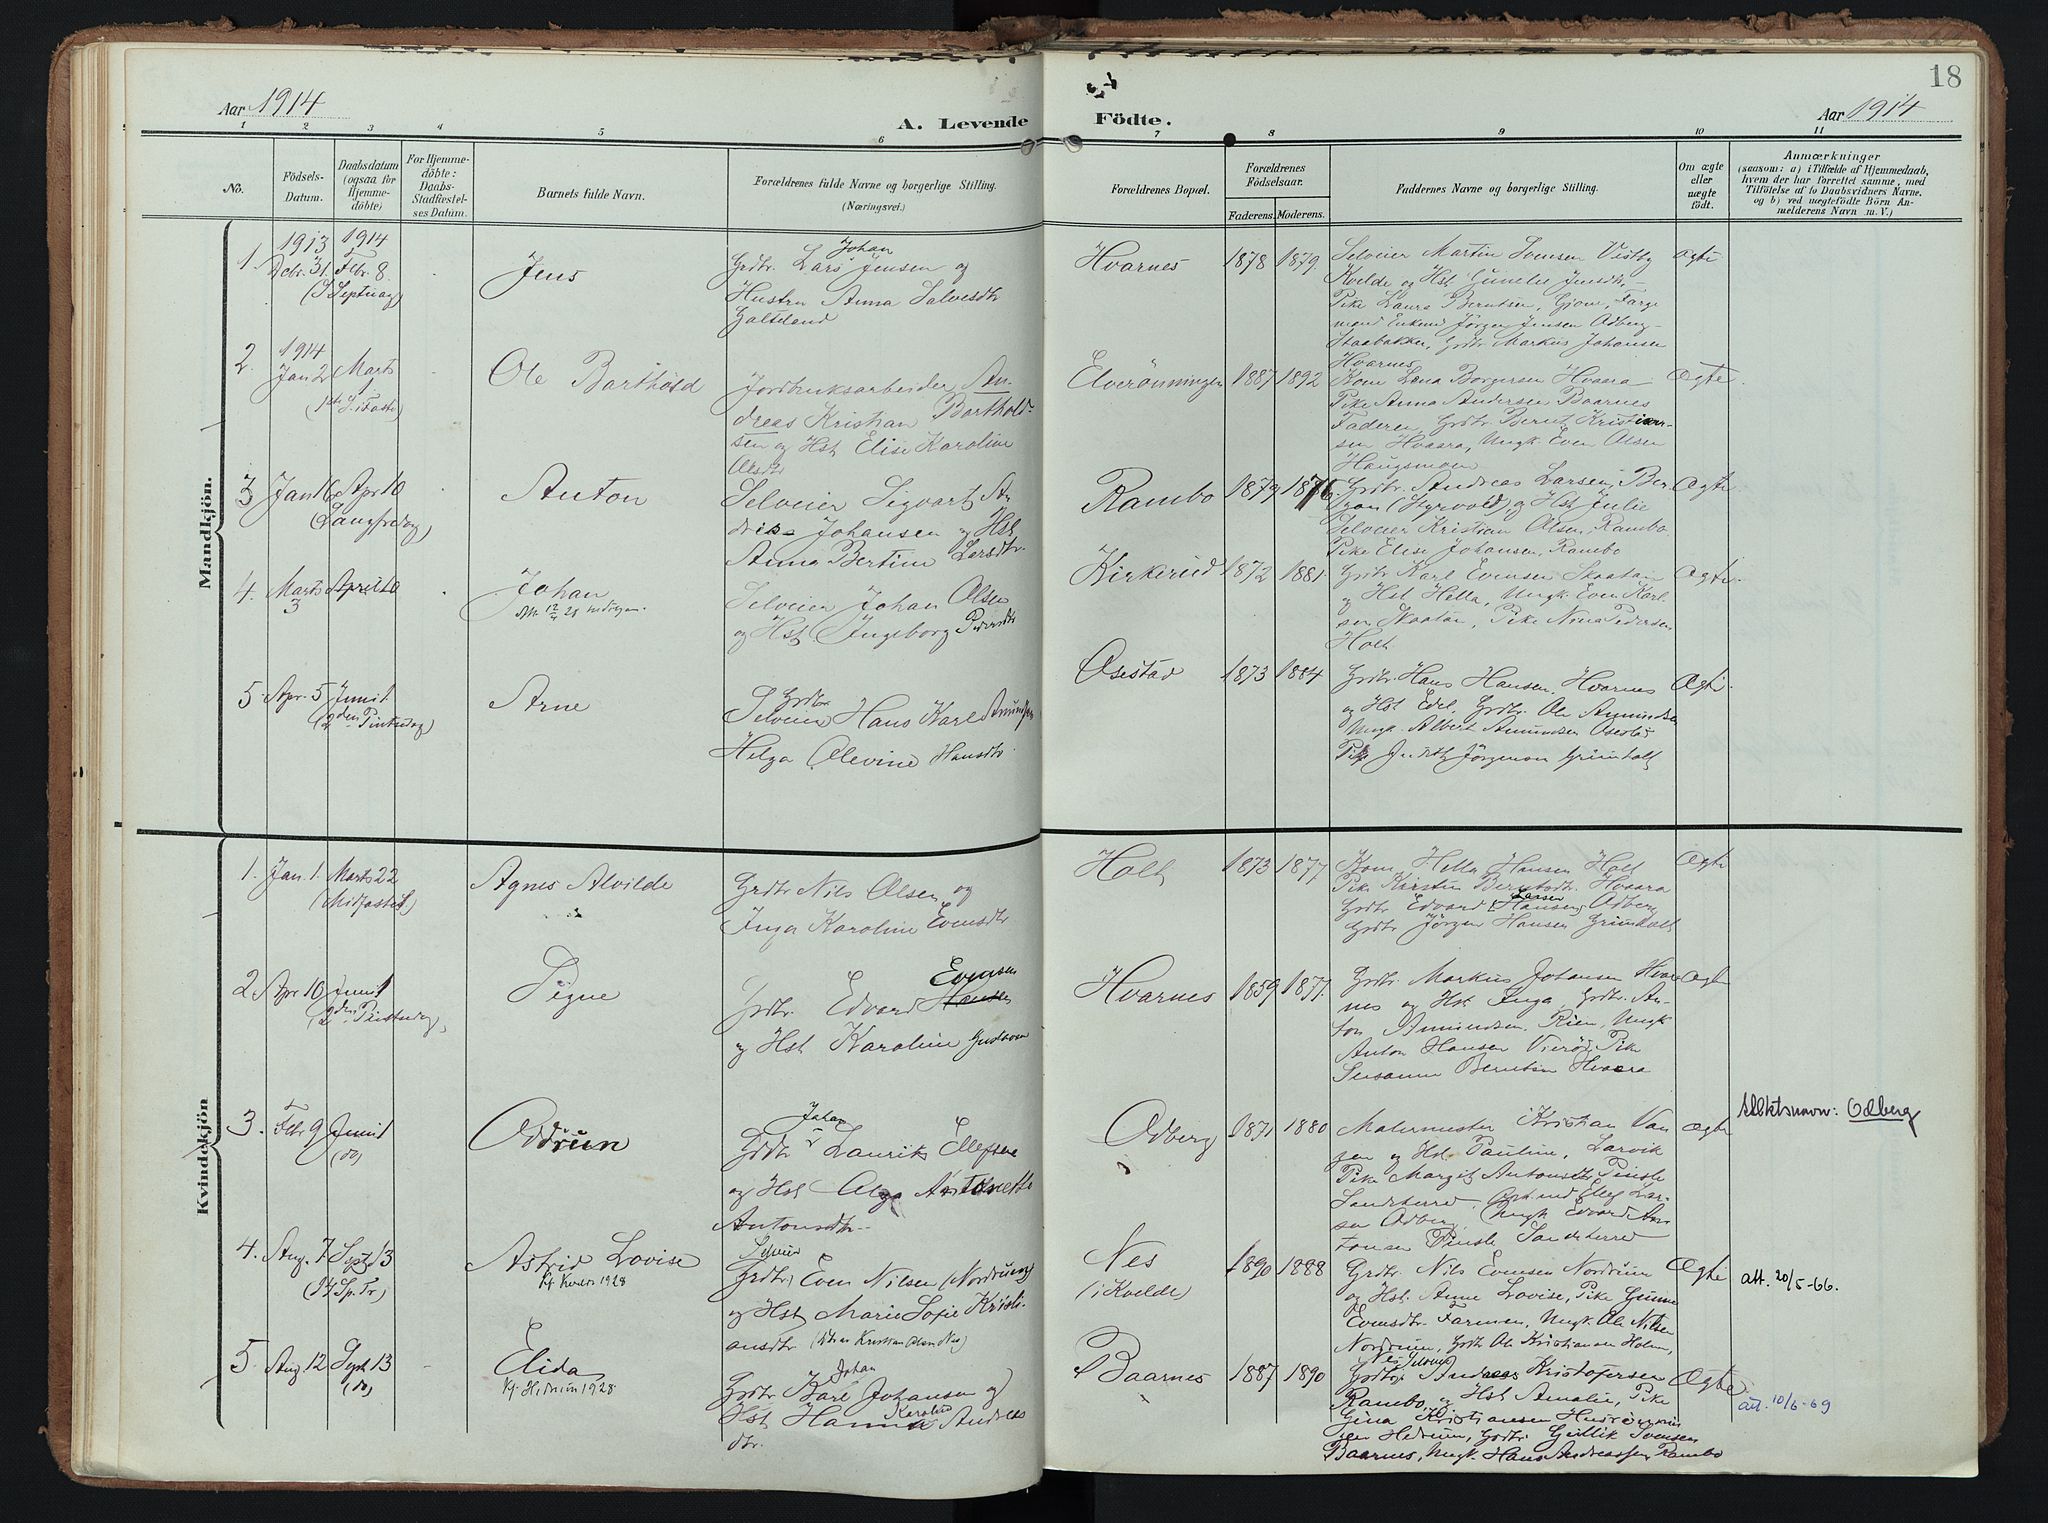 18
Aar 1914
A. Levende Födte.
Aar 1914
1 2 3 4 5 6 7 8 9 10 11
No.
Födsels-
Datum.
Daabsdatum
(ogsaa for
Hjemme-
döbte)
For Hjemme-
döbte:
Daabs-
Stadfæstel-
ses Datum.
Barnets fulde Navn.
Forældrenes fulde Navne og borgerlige Stilling.
(Næringsvei.)
Forældrenes Bopæl.
Forældrenes
Födselsaar.
Faderens. Moderens.
Faddernes Navne og borgerlige Stilling.
Om ægte
eller
uægte
födt.
Anmærkninger
(saasom: a) i Tilfælde af Hjemmedaab,
hvem der har forrettet samme, med
Tilföielse af to Daabsvidners Navne.
og b) ved uægtefödte Börn An-
melderens Navn m. V.)
Mandkjön.
1. 1913 Decbr. 31. 1914 Febr. 8.
(S. Septuag)
Jens
Grdbr. Lars Johan Jensen og
Hustru Anna Salvesdtr
Galteland
Hvarnes
1878 1879
Selveier Martin Svensen Vistby
Kvelde og Hst Gunelie Jensdtr, -
Pike Laura Berntsen, Gjone, Farge
mand Enkem Jørgen Jensen Odberg-
Staabakken, Grdbr Markus Johansen
Hvarnes
Ægte
2. 1914 Jan 2 Marts 1
(1ste S. i Faste)
Ole Barthold
Jordbruksarbeider An-
dreas Kristian Barthold-
sen og Hst Elise Karoline
Olsdtr
Elverönningen
1887 1892
Kone Lena Borgersen Hvaara
Pike Anna Andersen Baarnes
Faderen, Grdbr Bernt Kristian-
sen Hvaara, Ungk. Even Olsen
Haugsmoen
Ægte.
3 Jan 16 Apr 10
(Langfredag)
Anton
Selveier Sigvart An
dreas Johansen og Hst
Anna Bertine Larsdtr.
Rambo
1879 1876
Grdbr. Andreas Larsen, Ber
gan (Styrvold) og Hst Julie
Selveier Kristian Olsen, Rambo
Pike Elise Johansen, Rambo
Ægte
4. Marts 3 April 10
Johan
Selveier Johan Olsen
og Hst Ingeborg Pedersdtr
Kirkerud
1872 1881.
Grdbr Karl Evensen Skaatan
og Hst Hella, Ungk. Even Karl-
sen Skaatan, Pike Nina Pedersen
Holt
Ægte.
5. Apr. 5 Juni 1
(2den Pintsdag)
Arne
Grdbr
Selveier Hans Karl Amundsen
Helga Olevine Hansdtr.
Osestad
1873 1884
Grdbr. Hans Hansen, Hvarnes
og Hst Edel, Grdbr. Ole Amundsen
Ungk. Albert Amundsen Osestad
Pike Judith Jörgensen Grimholt
Ægte.
Kvindekjön
1. Jan. 1. Marts 22
(Midfaste S.)
Agnes Alvilde
Grdbr Nils Olsen og
Inga Karoline Evensdtr
Holt
1873 1877
Kone Hella Hansen Holt
Pike Kirstin Berntsdtr. Hvaara
Grdbr Edvard (Hansen) Larsen Odberg
Grdbr Jörgen Hansen Grimholt
Ægte
2 Apr 10 Juni 1
(2den Pintsdag)
Signe
Grdbr. Edvard Hansen Evensen
og Hst Karoline
Hvarnes
1859 1877.
Grdbr. Markus Johansen Hvar
nes og Hst Inga, Grdbr. An-
ton Amundsen, Rien, Ungk
Anton Hansen Vierød, Pike
Susanne Berntsen Hvaara
Ægte
3. Febr 9 Juni 1
(do)
Oddrun
Grdbr Johan Laurits Ellefsen
og Hst Olga Antonette
Antonsdtr.
Odberg
1871 1880
Malermester Kristian Van
gen og Hst Pauline, Larvik
Pike Margit Antonsdtr Pinsle
Sandeherred, Gbrmd Elef Lar-
sen Odberg, Ungk Edvard An-
tonsen Pinsle Sandeherred
Ægte
Slektsnavn: Odberg
4. Aug. 7 Sept 13
(14 S. p. Tr)
Astrid Lovise
Kf. Kvelde 1928
Selveier
Grdbr. Even Nilsen (Nordrum)
og Hst Marie Sofie Kristi-
ansdtr
Nes
(i Kvelde)
1890 1888
Grdbr. Nils Evensen Nordrum
og Hst. Anne Lovise, Pike Gunne
Evensdtr. Farmen, Ungk. Ole Nilsen
Nordrum, Grdbr Ole Kristiansen Holm,
Nes
Ægte
att. 20/5-66.
5 Aug 12 Sept 13
(do)
Elida
Kf. Hedrum 1928
Grdbr Karl Johan Johansen og
Hst Hanna Karoline Andreas
dtr.
Baarnes
1887 1890
Grdbr. Andreas Kristofersen
Rambo, og Hst Amalie, Pike
Gina Kristiansen
Hedrum, Grdbr. Gullik Svensen
Baarnes, Ungk. Hans Andreassen Rambo
Ægte
att. 10/6-69